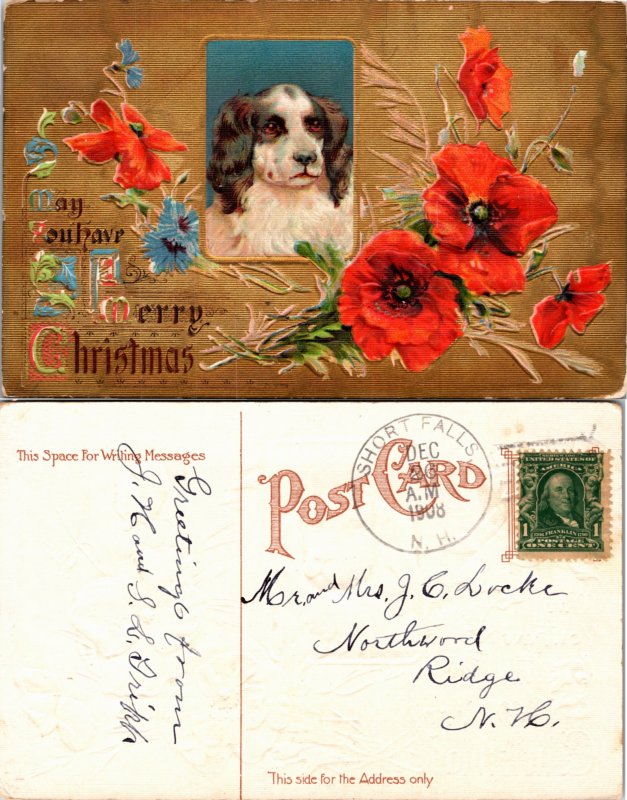 May
You have
A
Merry
Christmas
This Space For Writing Messages
Greetings from
J. H. and S. L. Tripp
POST CARD
SHORT FALLS
DEC
26
A.M
1908
N. H.
SERIES 1902
UNITED STATES OF
AMERICA
1 1
FRANKLIN
POSTAGE
ONE CENT
Mr. and Mrs. J. C. Locke
Northwood
Ridge
N. H.
This side for the Address only